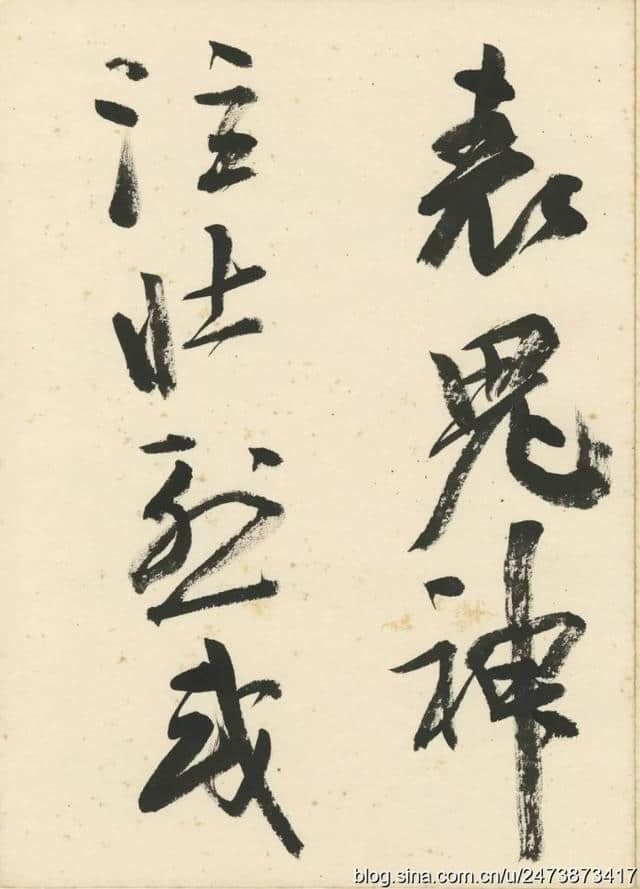 表鬼神
泣壮烈或
blog.sina.com.cn/u/2473873417